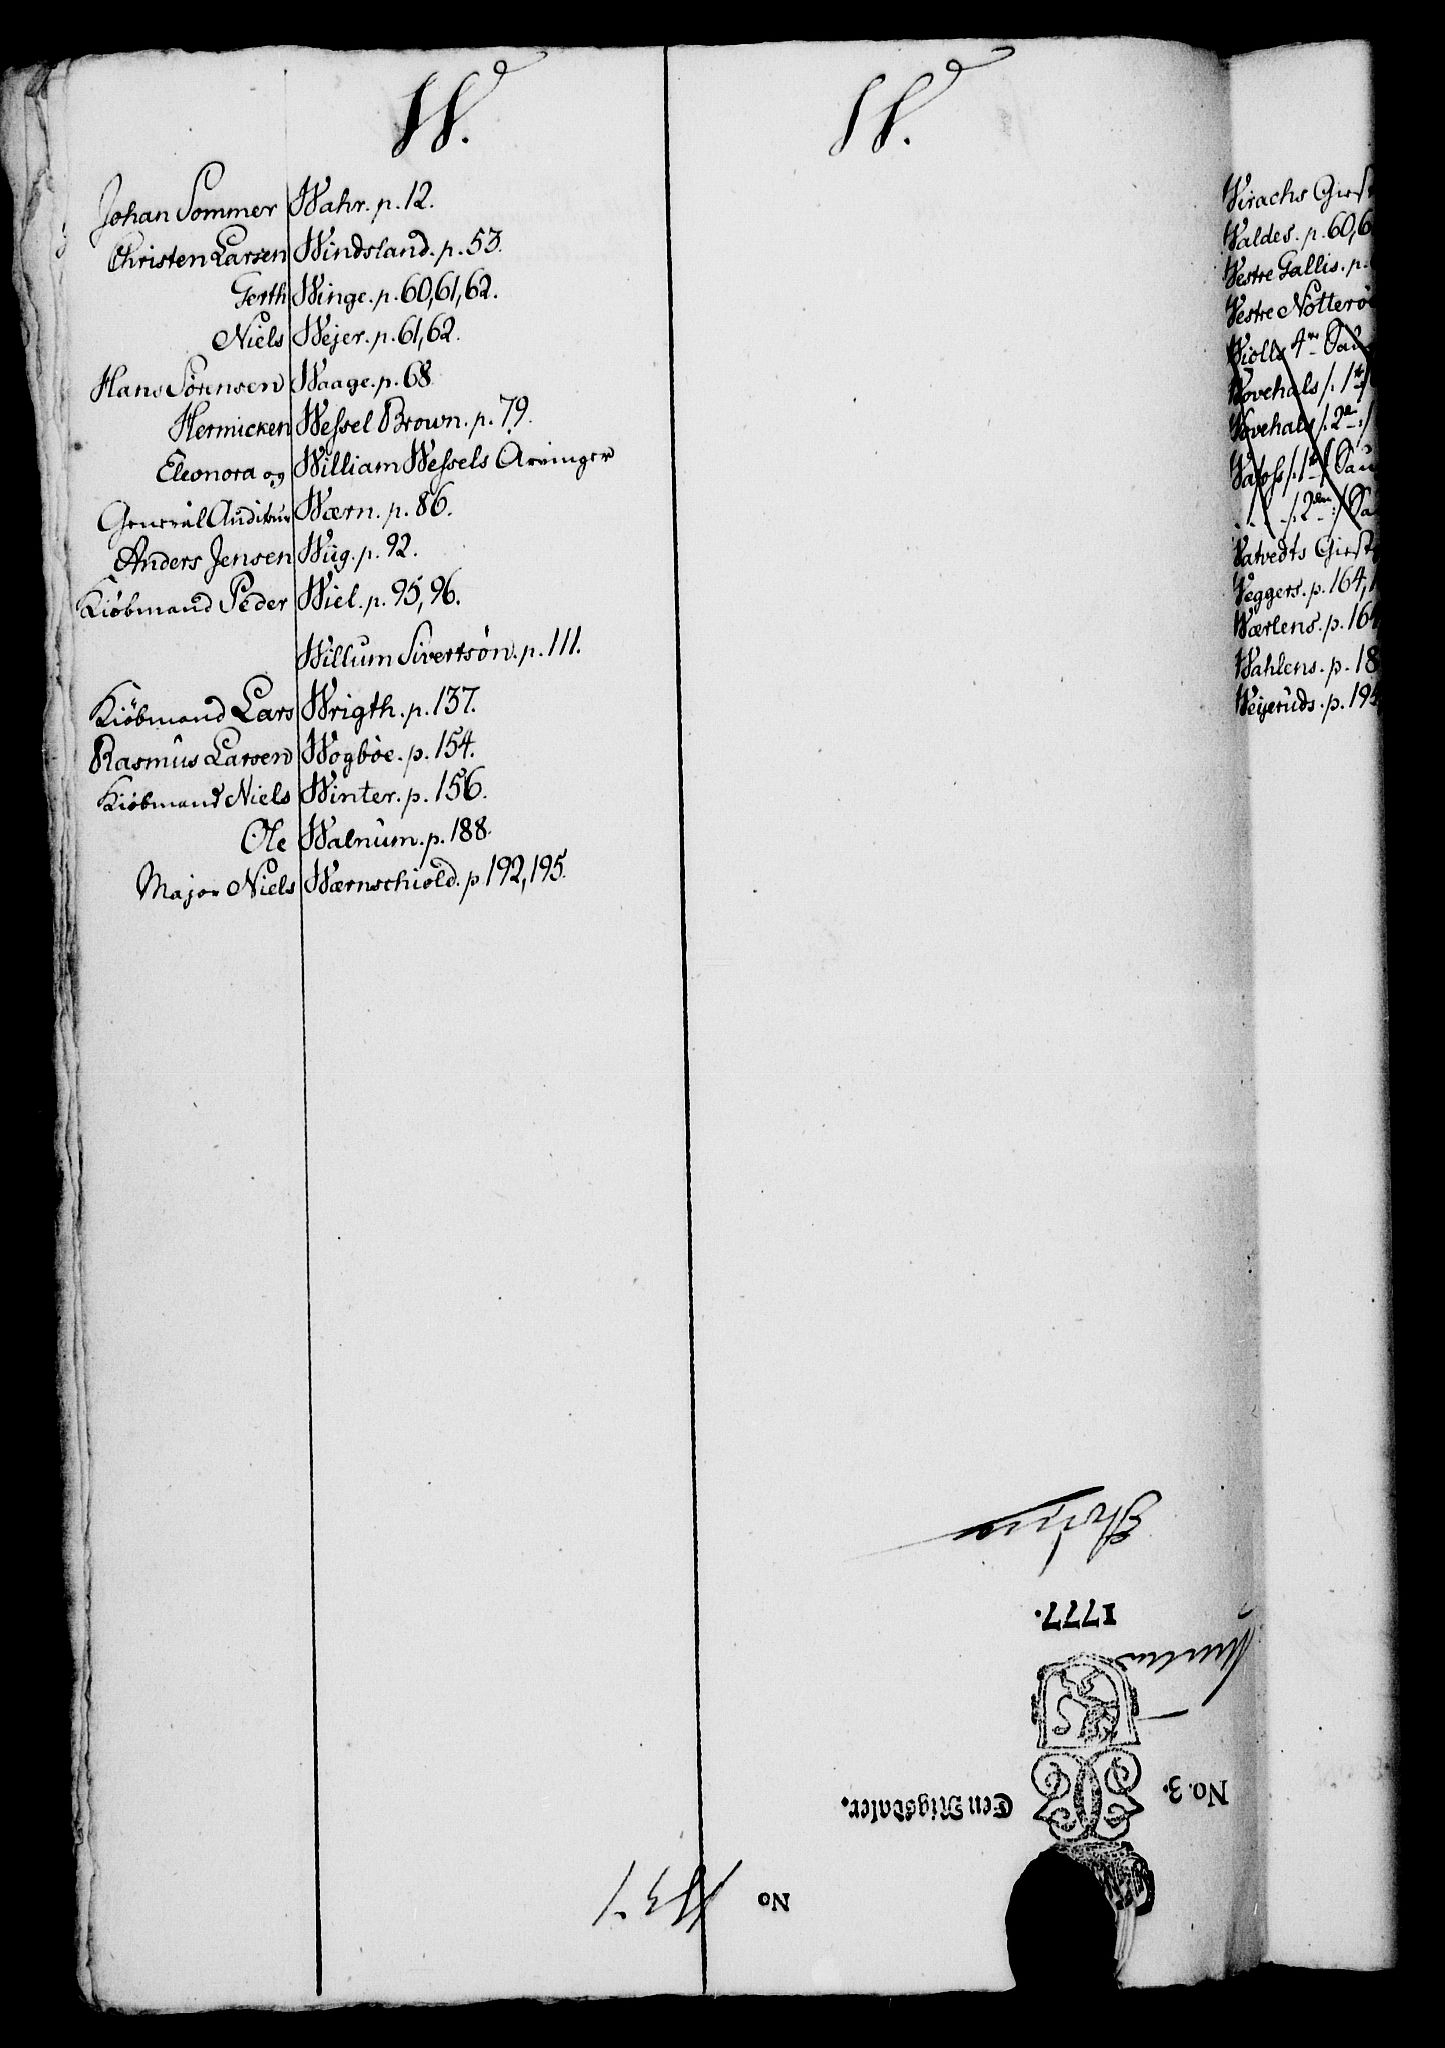 W.
Johan Sommer Wahr. p. 12.
Christen Larsen Windsland. p. 53.
Gerth Winge. p. 60, 61, 62.
Niels Wejer. p. 61, 62.
Hans Sörensen Waage. p. 68
Hermicken Wessel Brown. p. 79.
Eleonora og William Wessels Arvinger
General Auditeur Wærn. p. 86.
Anders Jensen Wüg. p. 92.
Kiöbmand Peder Wiel. p. 95, 96.
Willum Sivertsön. p. 111.
Kiöbmand Lars Wrigth. p. 137.
Rasmus Larsen Wogböe. p. 154.
Kiöbmand Niels Winter. p. 156.
Ole Walnum. p. 188.
Major Niels Wærnschiold. p 192, 195.
W.
Wirachs Giest
Waldes. p. 60, 6
Westre Gallis. p.
Westre Nötterö
Wiolls 4de Sau
Wovehals /: 1te
Wovehals /: 2de :/
Watvedts Giest
Weggers. p. 164, 1
Wærlens. p. 164
Wahlens. p. 18
Weyeruds. p. 195
1777.
No. 3.
Een Rigsdaler.
No